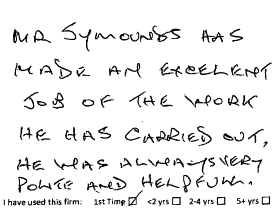 MR SYMOUNDS HAS
MADE AN EXCELENT
JOB OF THE WORK
HE HAS CARRIED OUT,
HE WAS ALWAYS VERY
POLITE AND HELPFULL.
I have used this firm: 1st Time ☑ <2 yrs ☐ 2-4 yrs ☐ 5+ yrs ☐